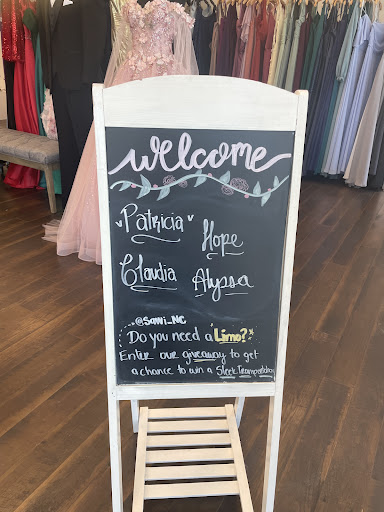 welcome
Patricia Hope
Claudia Alyssa
Do you need a Limo?
Enter our giveaway to get
a chance to win a Sleek Transportation